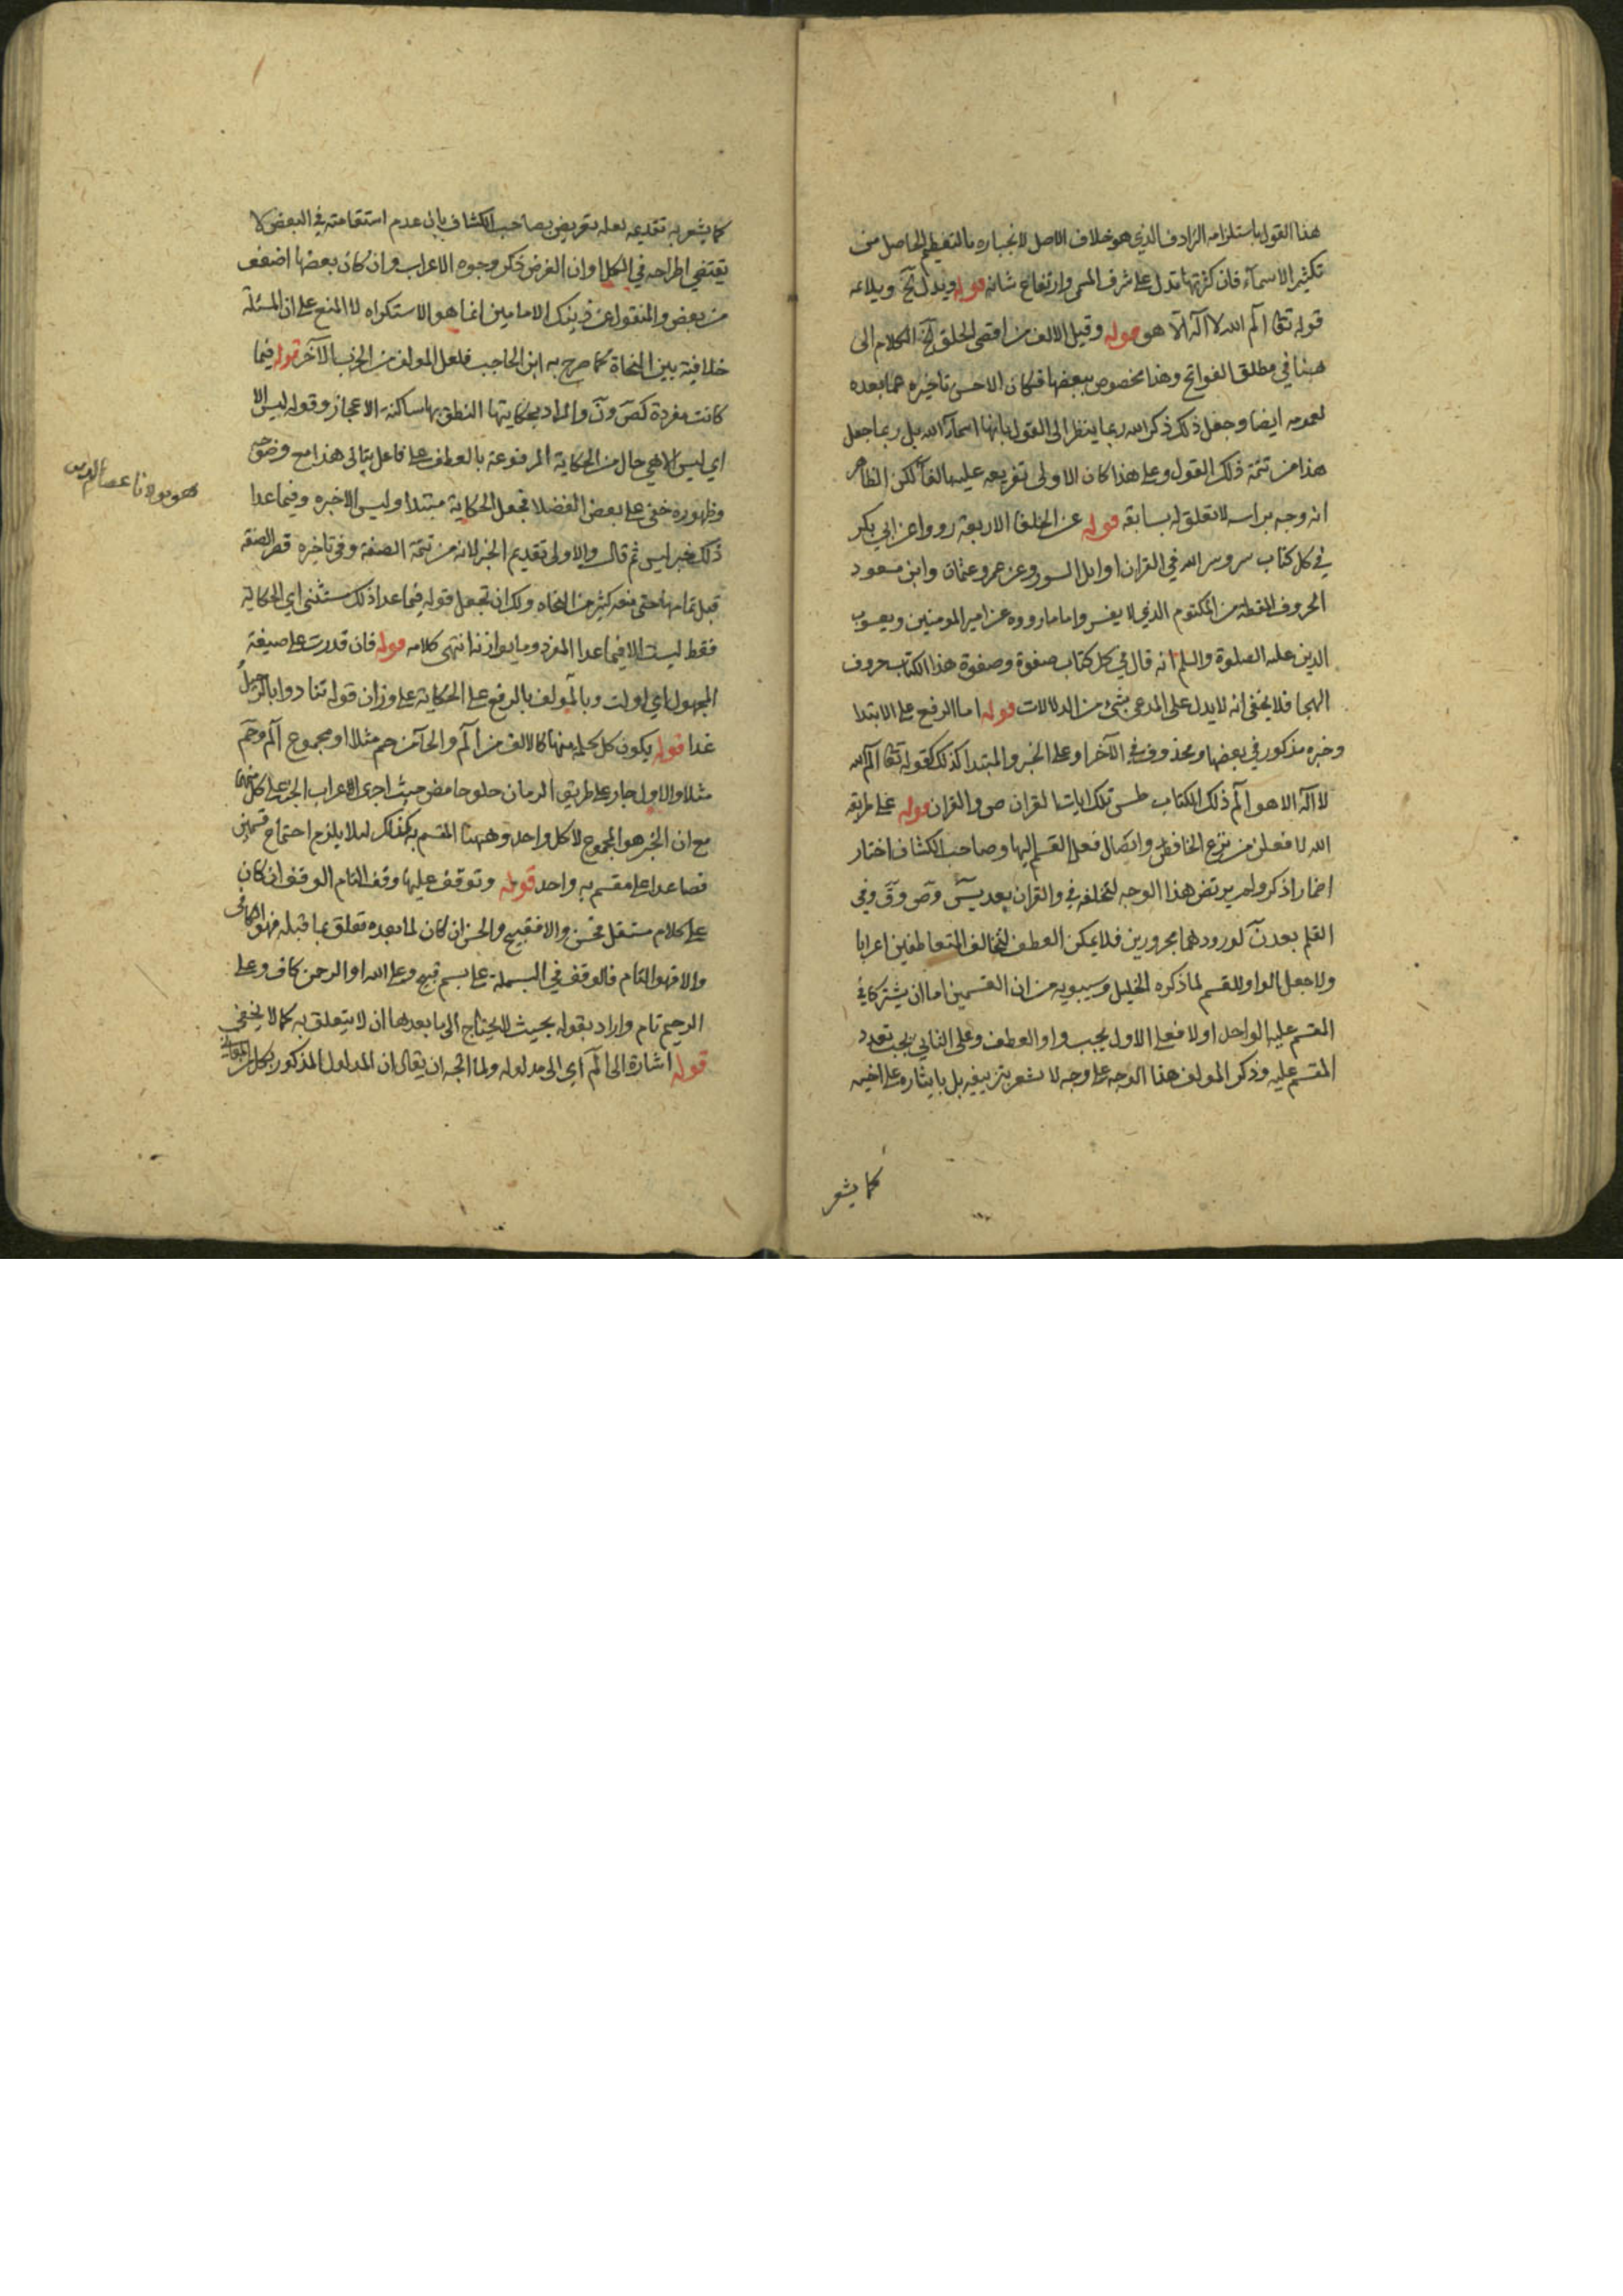 هذا القول باستلزامه الترادف الذي هو خلاف الاصل لانجباره بالتعظيم الحاصل من
تكثير الاسماء فان كثرتها تدل على شرف المسمى وارتفاع شانه قوله ويدل الخ ويلائمه
قوله تعا الم الله لا اله الا هو قوله وقيل الالف من اقصى الحلق الخ الكلام الى
هنا في مطلق الفواتح وهذا مخصوص ببعضها فكان الاحسن تاخيره عما بعده
لعمومه ايضا وجعل ذلك ذكر الله ربما ينظر الى القول بانها اسماء الله بل ربما جعل
هذا من تتمة ذلك القول وعلى هذا كان الاولى تفريعه عليه بالفاء لكن الظاهر
انه وجه براسه لا تعلق له بسابقه قوله عن الخلفا الاربعة رووا عن ابي بكر
في كل كتاب سر وسر الله في القران اوايل السور وعن عمر وعثمان وابن مسعود
الحروف المقطعة من المكتوم الذي لا يفسر واما ما رووه عن امير المومنين ويعسوب
الدين عليه الصلوة والسلم انه قال في كل كتاب صفوة وصفوة هذا الكتاب حروف
الهجا فلا يخفى انه لا يدل على المدعى بشيء من الدلالات قوله اما الرفع على الابتدا
وخبره مذكور في بعضها ومحذوف في الآخر او على الخبر والمبتدا كذلك كقوله تعا الم الله
لا اله الا هو الم ذلك الكتاب طس تلك ايات القران ص والقران قوله على طريقه
الله لافعلن من نزع الخافض وايصال فعل القسم اليها وصاحب الكشاف اختار
اضمار اذكر ولم يرتض هذا الوجه لتخلفه في والقران بعد يس وص وق وفي
القلم بعد ن لورودهما مجرورين فلا يمكن العطف لتخالف المتعاطفين اعرابا
ولا جعل الواو للقسم لما ذكره الخليل وسيبويه من ان القسمين اما ان يشتركا في
المقسم عليه الواحد او لا فعلى الاول يجب واو العطف وعلى الثاني يجب تعدد
المقسم عليه وذكر المولف هذا الوجه على وجه لا يشعر بتزييفه بل بايثاره على اخيه
كما يشعر
كما يشعر به تقديمه لعله تعريض بصاحب الكشاف بان عدم استقامته في البعض لا
يقتضي اطراحه في الكل او ان الغرض ذكر وجوه الاعراب وان كان بعضها اضعف
من بعض والمنقول عن ذينك الامامين انما هو الاستكراه لا المنع على ان المسئلة
خلافية بين النحاة كما صرح به ابن الحاجب فلعل المولف من الحزب الآخر قوله فيما
كانت مفردة كص ون والمراد بحكايتها النطق بها ساكنة الاعجاز وقوله ليس الا
اي ليس الا هي حال من الحكاية المرفوعة بالعطف على فاعل يتاتى هذا مع وضوحه
وظهوره خفي على بعض الفضلا فجعل الحكاية مبتدا وليس الا خبره وفيما عدا
ذلك خبر ليس ثم قال والاولى تقديم الخبر لانه من تتمة الصفة وفي تاخيره قصر الصفة
قبل تمامها حتى منعه كثير من النحاه ولك ان تجعل قوله فيما عدا ذلك مستثنى اي الحكاية
فقط ليست الا فيما عدا المفرد وما يوازنه انتهى كلامه قوله فان قدرت على صيغة
المجهول اي اولت وبالمولف بالرفع على الحكاية على وزان قوله تنادوا بالرحيل
غدا قوله يكون كل كلمة منها كالالف من الم والحاء من حم مثلا او مجموع الم وحم
مثلا والاول جار على طريق الرمان حلو حامض حيث اجرى الاعراب الجزء على كل منهما
مع ان الخبر هو المجموع لا كل واحد وههنا المقسم به كذلك لئلا يلزم اجتماع قسمين
فصاعدا على مقسم به واحد قوله وتوقف عليها وقف التام الوقف ان كان
على كلام مستقل فحسن والا فقبيح والحسن ان كان لما بعده تعلق بما قبله فهو الكافي
والا فهو التام فالوقف في البسملة على بسم قبيح وعلى الله او الرحمن كاف وعلى
الرحيم تام واراد بقوله بحيث لا يحتاج الى ما بعدها ان لا يتعلق به كما لا يخفى
قوله اشارة الى الم اي الى مدلوله ولما اتجه ان يقال ان المدلول المذكور بكل من
هو مولانا عصام الدين